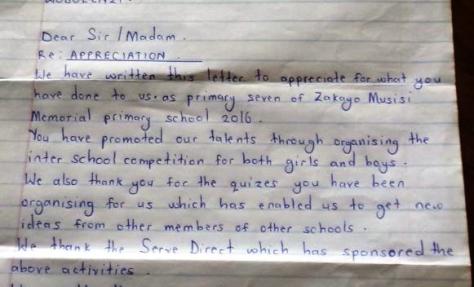 Dear Sir/Madam.
Re: APPRECIATION.
We have written this letter to appreciate for what you
have done to us. as primary seven of Zakayo Musisi
Memorial primary school 2016.
You have promoted our talents through organising the
inter school competition for both girls and boys.
We also thank you for the quizes you have been
organising for us which has enabled us to get new
ideas from other members of other schools.
We thank the Serve Direct which has sponsored the
above activities.